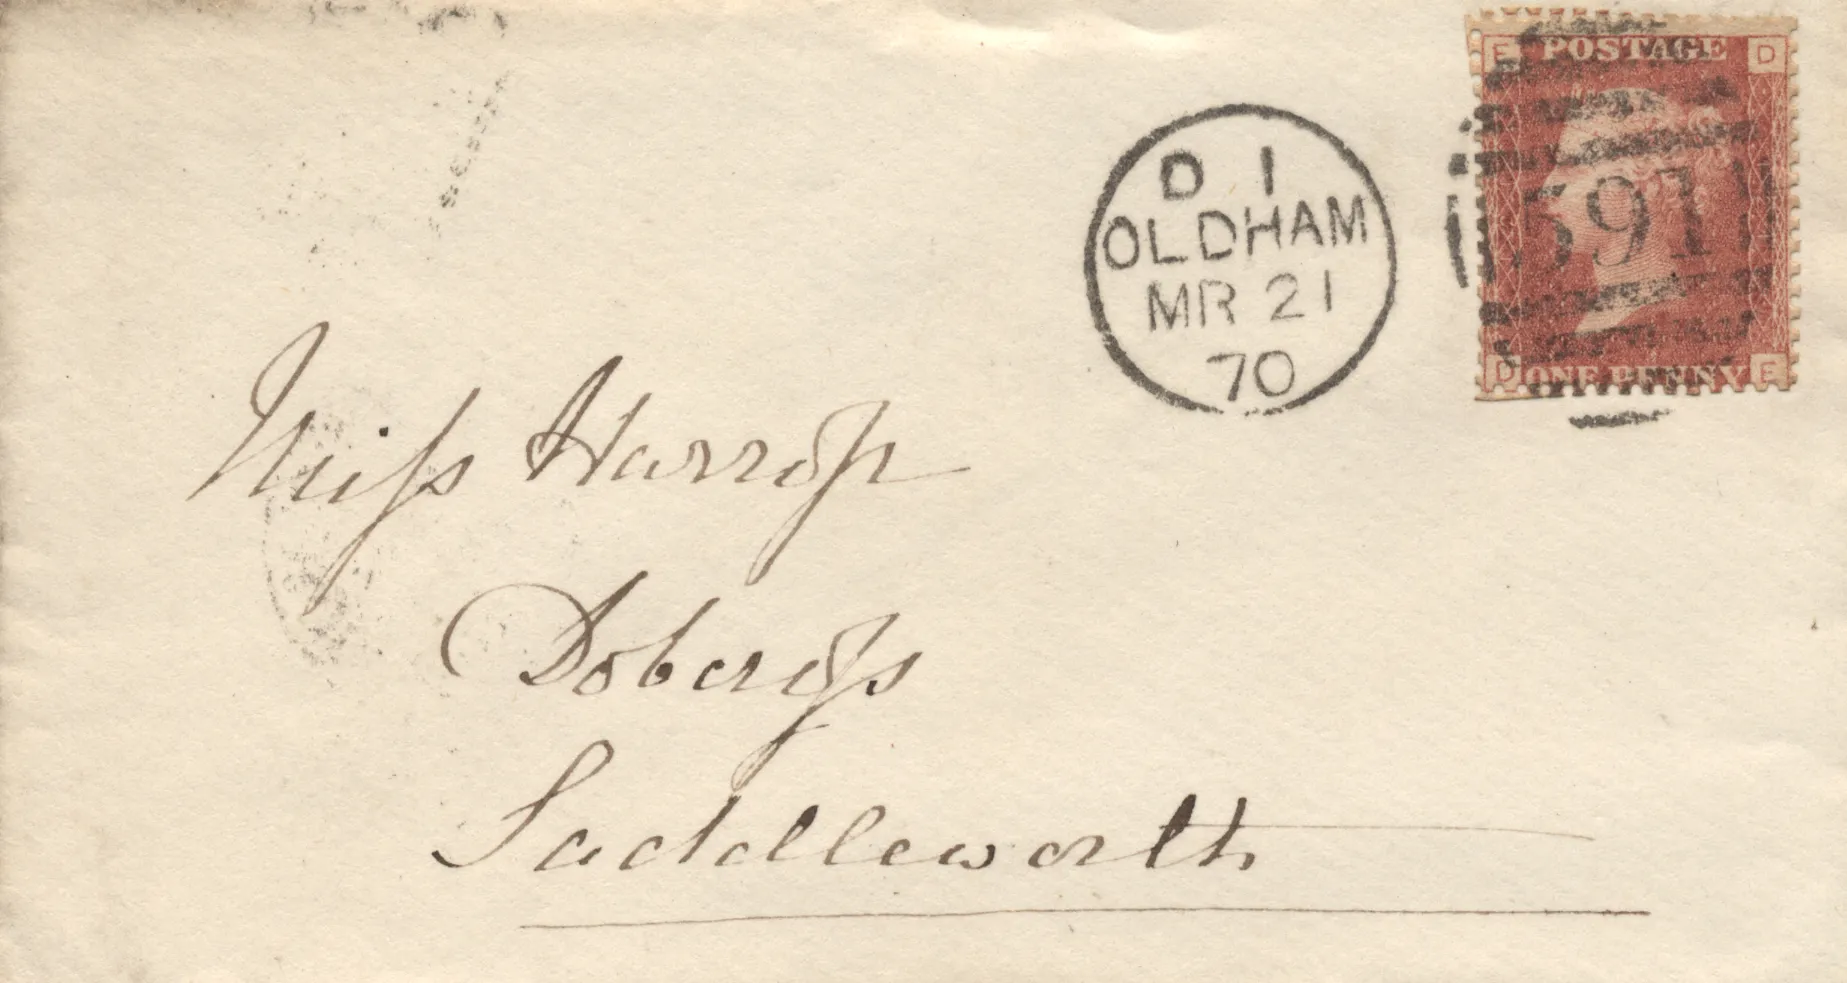 E POSTAGE D
D 1
OLDHAM
MR 21
70
591
D ONE PENNY E
Miſs Harrop
Dobcroſs
Saddleworth